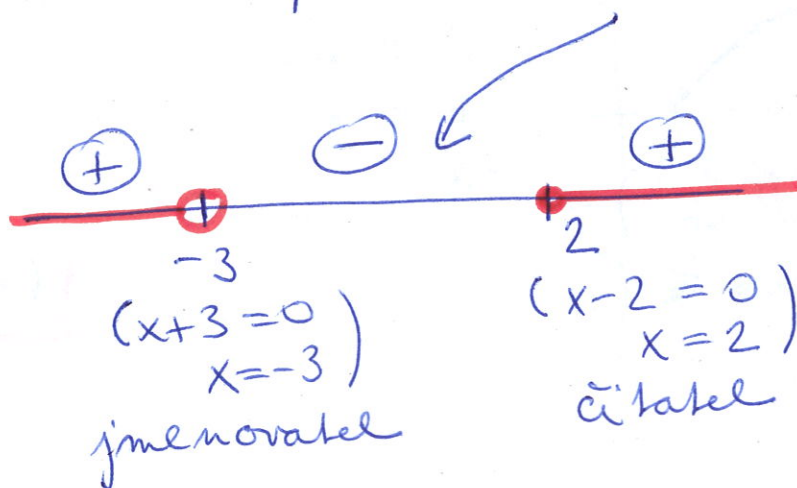 + − +
-3 2
(x+3=0
x=-3)
jmenovatel
(x-2=0
x=2)
čitatel